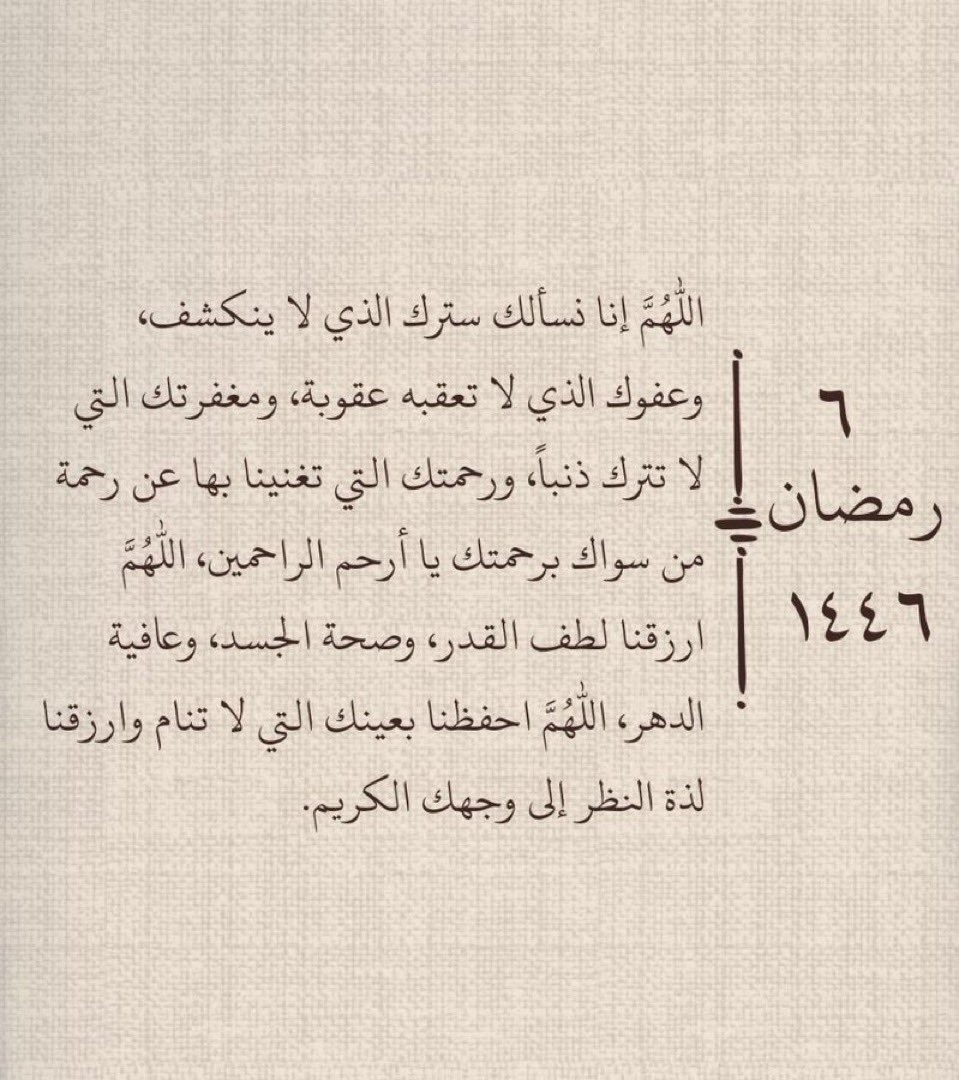 ٦
رمضان
١٤٤٦
اللّٰهُمَّ إنا نسألك سترك الذي لا ينكشف،
وعفوك الذي لا تعقبه عقوبة، ومغفرتك التي
لا تترك ذنباً، ورحمتك التي تغنينا بها عن رحمة
من سواك برحمتك يا أرحم الراحمين، اللّٰهُمَّ
ارزقنا لطف القدر، وصحة الجسد، وعافية
الدهر، اللّٰهُمَّ احفظنا بعينك التي لا تنام وارزقنا
لذة النظر إلى وجهك الكريم.